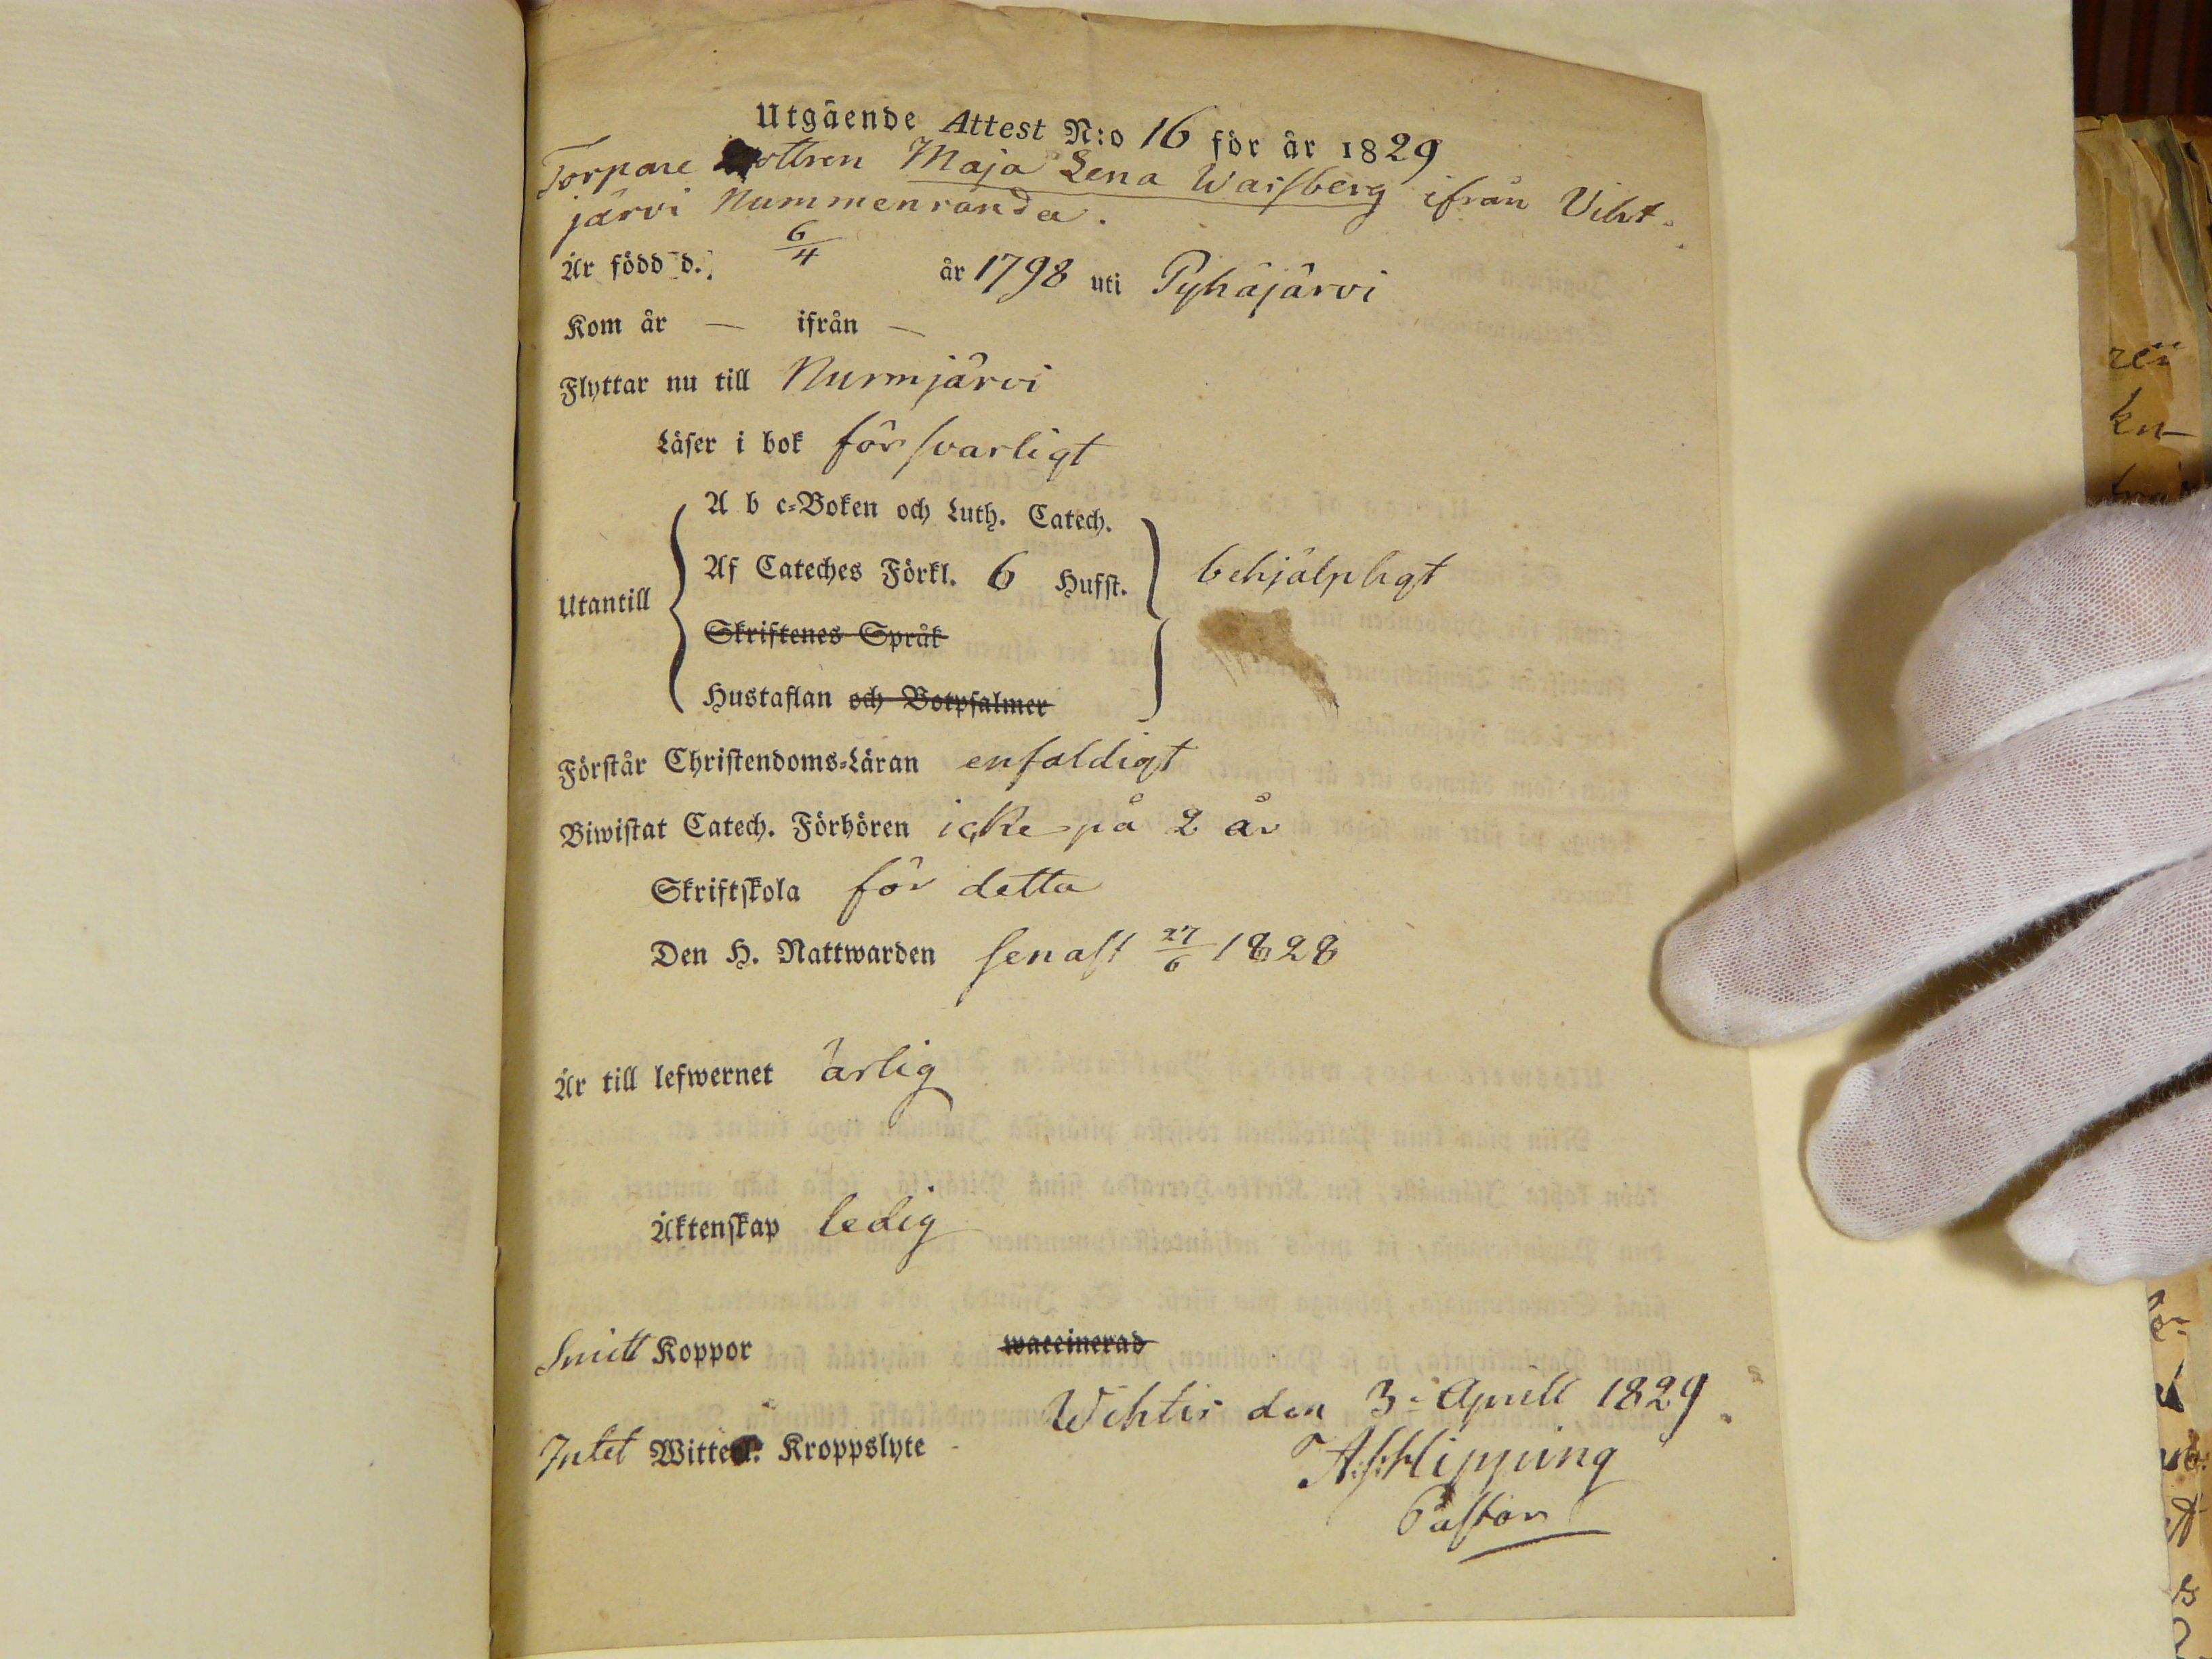 Utgående Attest N:o 16 för år 1829
Torpare dottren Maja Lena Waisberg ifrån Viht-
järvi Nummenranda.
Är född d. 6/4 år 1798 uti Pyhäjärvi
Kom år — ifrån —
Flyttar nu till Nurmjärvi
Läser i bok försvarligt
Utantill
A b c-Boken och Luth. Catech.
Af Cateches Förkl. 6 Hufst. behjälpligt
Skriftenes Språk
Hustaflan och Botpsalmer
Förstår Christendoms-Läran enfaldigt
Biwistat Catech. Förhören icke på 2 år
Skriftskola för detta
Den H. Nattwarden senast 27/6 1828
Är till lefwernet ärlig
Äktenskap ledig
Smitt Koppor waccinerad
Wihtis den 3. Aprill 1829.
Intet Witte Kroppslyte
Pastor